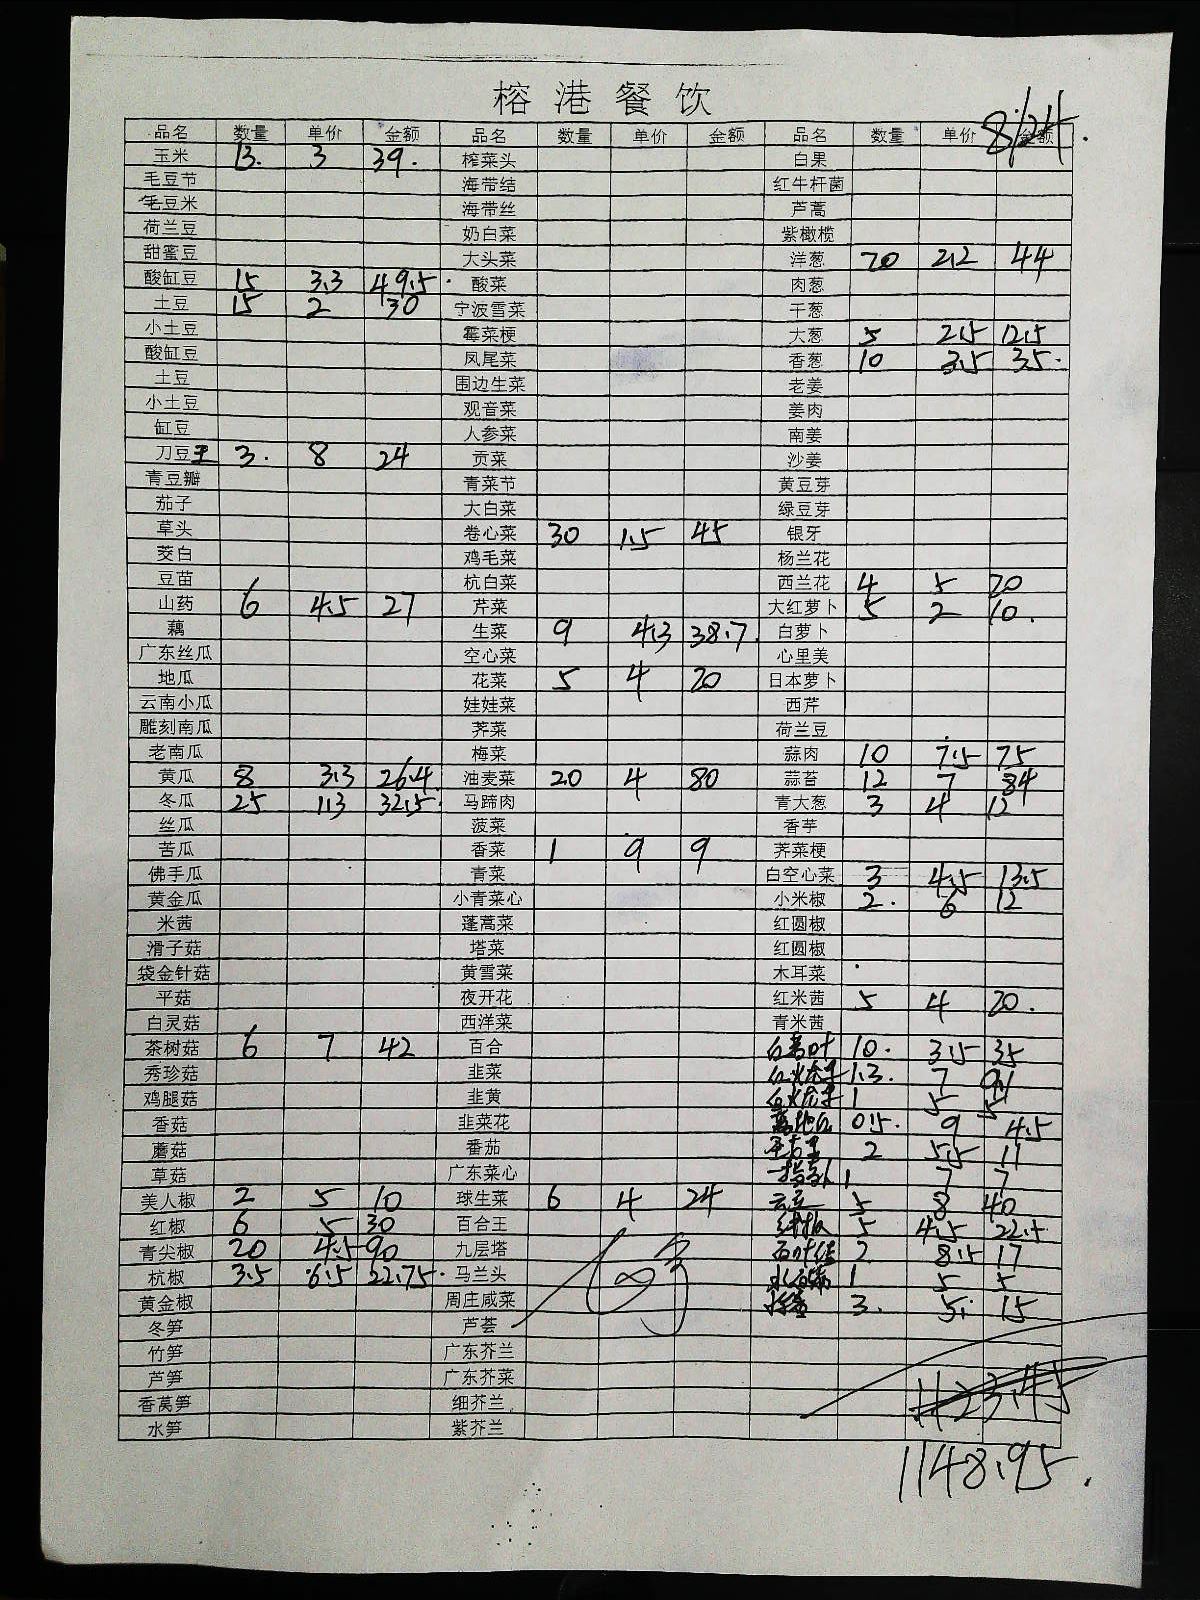 榕港餐饮
8/24.
品名 数量 单价 金额 品名 数量 单价 金额 品名 数量 单价 金额
玉米 13. 3 39. 榨菜头 白果
毛豆节 海带结 红牛杆菌
毛豆米 海带丝 芦蒿
荷兰豆 奶白菜 紫橄榄
甜蜜豆 大头菜 洋葱 20 2.2 44
酸缸豆 15 3.3 49.5. 酸菜 肉葱
土豆 15 2 30 宁波雪菜 干葱
小土豆 霉菜梗 大葱 5 2.5 12.5
酸缸豆 凤尾菜 香葱 10 3.5 35.
土豆 围边生菜 老姜
小土豆 观音菜 姜肉
缸豆 人参菜 南姜
刀豆王 3. 8 24 贡菜 沙姜
青豆瓣 青菜节 黄豆芽
茄子 大白菜 绿豆芽
草头 卷心菜 30 1.5 45 银牙
茭白 鸡毛菜 杨兰花
豆苗 杭白菜 西兰花 4 5 20
山药 6 4.5 27 芹菜 大红萝卜 5 2 10.
藕 生菜 9 4.3 38.7. 白萝卜
广东丝瓜 空心菜 心里美
地瓜 花菜 5 4 20 日本萝卜
云南小瓜 娃娃菜 西芹
雕刻南瓜 荠菜 荷兰豆
老南瓜 梅菜 蒜肉 10 7.5 75
黄瓜 8 3.3 26.4 油麦菜 20 4 80 蒜苔 12 7 84
冬瓜 25 1.3 32.5. 马蹄肉 青大葱 3 4 12
丝瓜 菠菜 香芋
苦瓜 香菜 1 9 9 荠菜梗
佛手瓜 青菜 白空心菜 3 4.5 13.5
黄金瓜 小青菜心 小米椒 2. 6 12
米茜 蓬蒿菜 红圆椒
滑子菇 塔菜 红圆椒
袋金针菇 黄雪菜 木耳菜
平菇 夜开花 红米茜 5 4 20.
白灵菇 西洋菜 青米茜
茶树菇 6 7 42 百合 10. 3.5 35
秀珍菇 韭菜 1.3. 7 9.1
鸡腿菇 韭黄 1 5 5
香菇 韭菜花 0.5. 9 4.5
蘑菇 番茄 2 5.5 11
草菇 广东菜心 1 7 7
美人椒 2 5 10 球生菜 6 4 24 云豆 5 8 40
红椒 6 5 30 百合王 5 4.5 22.5
青尖椒 20 4.5 90 九层塔 2 8.5 17
杭椒 3.5 6.5 22.75. 马兰头 1 5 5
黄金椒 周庄咸菜 3. 5. 15
冬笋 芦荟
竹笋 广东芥兰
芦笋 广东芥菜
香莴笋 细芥兰
水笋 紫芥兰
1148.95.